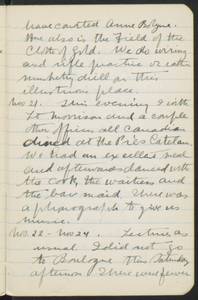 have courted Anne Boleyn.
Here also is the Field of the
Cloth of Gold. We do wiring
and rifle practice &
musketry drill in this
illustrious place.
Nov. 21. This evening I with
Lt Morrison and a couple
other officers all Canadian
dined at the Pres Catelan.
We had an excellent meal
and afterwards danced with
the cook, the waitress and
the bar maid. There was
a phonograph to give us
music.
Nov. 22 - Nov 24. Lecture as
usual. I did not go
to Boulogne this Saturday
afternoon. There were fewer